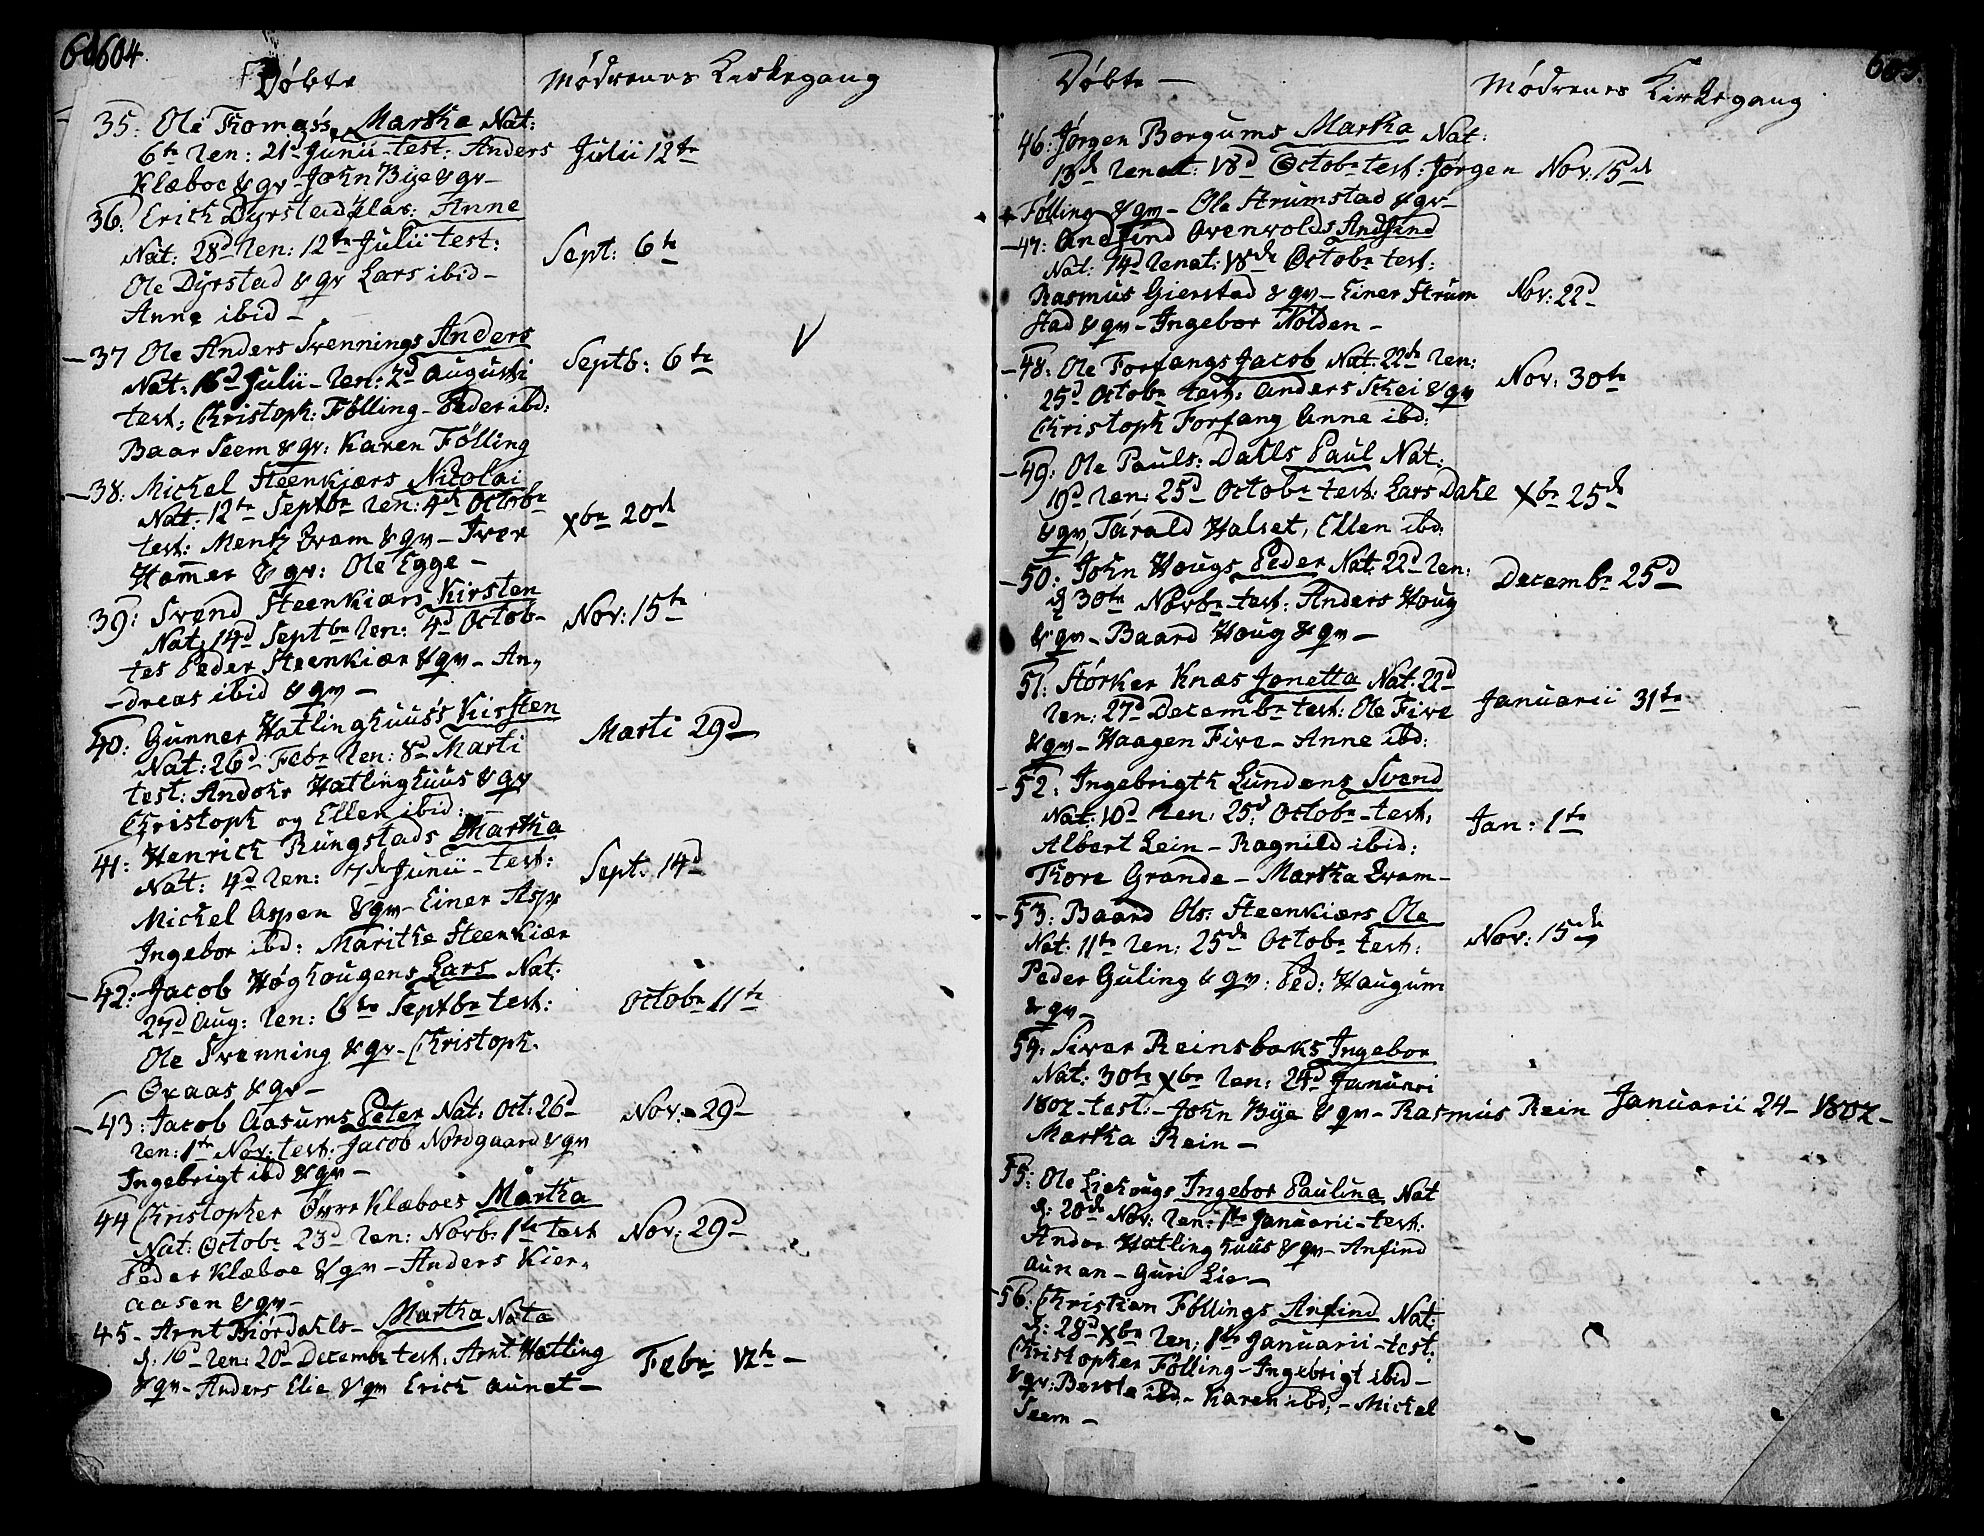 604
Døbte
Mødrenes Kirkegang
35: Ole Thomas's Martha Nat:
6te ren: 21d Junii test: Anders
Klæboe & qv - John Bye & qv -
Julii 12te
36: Erich Dyrstad Anne
Nat: 28d ren: 12te Julii test:
Ole Dyrstad & qv Lars ibid -
Anne ibid -
Sept: 6te
37 Ole Anders Svennings Anders
Nat: 16d Julii - ren: 2d Augusti
test: Christoph: Følling - Peder ibd:
Baar Seem & qv: Karen Følling
Septb: 6te
38: Michel Steenkjærs Nicolai
Nat: 12te Septbr ren: 4de Octobr
test: Mentz Qvam & qv - Iver
Hammer & qv: Ole Egge -
xbr 20d
39: Svend Steenkiærs Kirsten
Nat: 14d Septbr ren: 4d Octob-
tes Peder Steenkiær & qv - An,
-dreas ibid & qv -
Nov: 15te
40: Gunner Hatlinghuus's Kirsten
Nat: 26d Febr ren: 8d Marti
test: Andor Hatlinghuus & qv
Christoph og Ellen ibid:
Marti 29d
41: Henrich Rungstads Martha
Nat: 4d ren: 7de Junii - test:
Michel Aspen & qv - Einer Asp
Ingebor ibd: Marithe Steenkiær
Sept: 14d
42: Jacob Høghougens Lars Nat:
27d Aug: ren: 6te Septbr test:
Ole Svenning & qv - Christoph.
Qvaas & qv -
Octobr 11te
43: Jacob Aasums Peter Nat: Oct: 26d
ren: 1te Nov: test: Jacob Nordgaard & qv
Ingebrigt ibd & qv -
Nov: 29d
44 Christopher Øvre Klæboes Martha
Nat: Octobr 23d ren: Novb: 1te test
Peder Klæboe & qv - Anders Kier,
aasen & qv -
Nov: 29d
45 - Arnt Biørdahls - Martha Nata
d: 16d ren: 20d Decembr test: Arnt Hatling
& qv - Anders Elie & qv Erich Aunet -
Febr 12te -
605.
Døbte -
Mødrenes Kirkegang
46: Jørgen Borgums Martha Nat:
13de renat: 18d Octobr test: Jørgen
Følling & qv - Ole Strumstad & qv -
Nov: 15de
47: Andfind Ovenvolds Andfind
Nat: 14d renat: 18de Octobr test:
Rasmus Gierstad & qv - Einer Strum
stad & qv - Ingebor Nolden -
Nov: 22d
48: Ole Forfangs Jacob Nat: 22de ren:
25d Octobr test: Anders Schei & qv
Christoph Forfang Anne ibd:
Nov: 30te
49: Ole Pauls: Dahls Paul Nat:
19d ren: 25d Octobr test: Lars Dahl
& qv, Tarald Halset, Ellen ibd:
xbr 25de
50: John Hougs Peder Nat: 22d ren:
d 30te Novbr test: Anders Houg
& qv - Baard Houg & qv -
Decembr 25d
51: Størker Knæs Jonetta Nat: 22d
ren: 27d Decembr test: Ole Five
& qv - Haagen Five - Anne ibd:
Januarii 31te
52: Ingebrigth Lundens Svend
Nat: 10d ren: 25d: Octobr - test,
Albert Lein - Ragnild ibid:
Thore Grande - Martha Qvam -
Jan: 1te
53: Baard Ols: Steenkiærs Ole
Nat: 11te ren: 25de Octobr test:
Peder Guling & qv: Ped: Haugum
& qv -
Nov: 15de
54: Siver Reinsbaks Ingebor
Nat: 30te xbr ren: 24d Januari
1802 - test: - John Bye & qv - Rasmus Rein
Martha Rein -
Januarii 24 - 1802 -
55: Ole Liehougs Ingebor Paulina Nat
d: 20de Nov: ren: 1te Januarii - test:
Andor Hatlinghuus & qv - Anfind
Aunan - Guri Lie -
56: Christian Føllings Anfind Nat:
d: 28d xbr ren: 1te Januarii - test:
Christopher Følling - Ingebrigt ibid -
& qv: Berete ibd, - Karen ibd: - Michel
Seem -